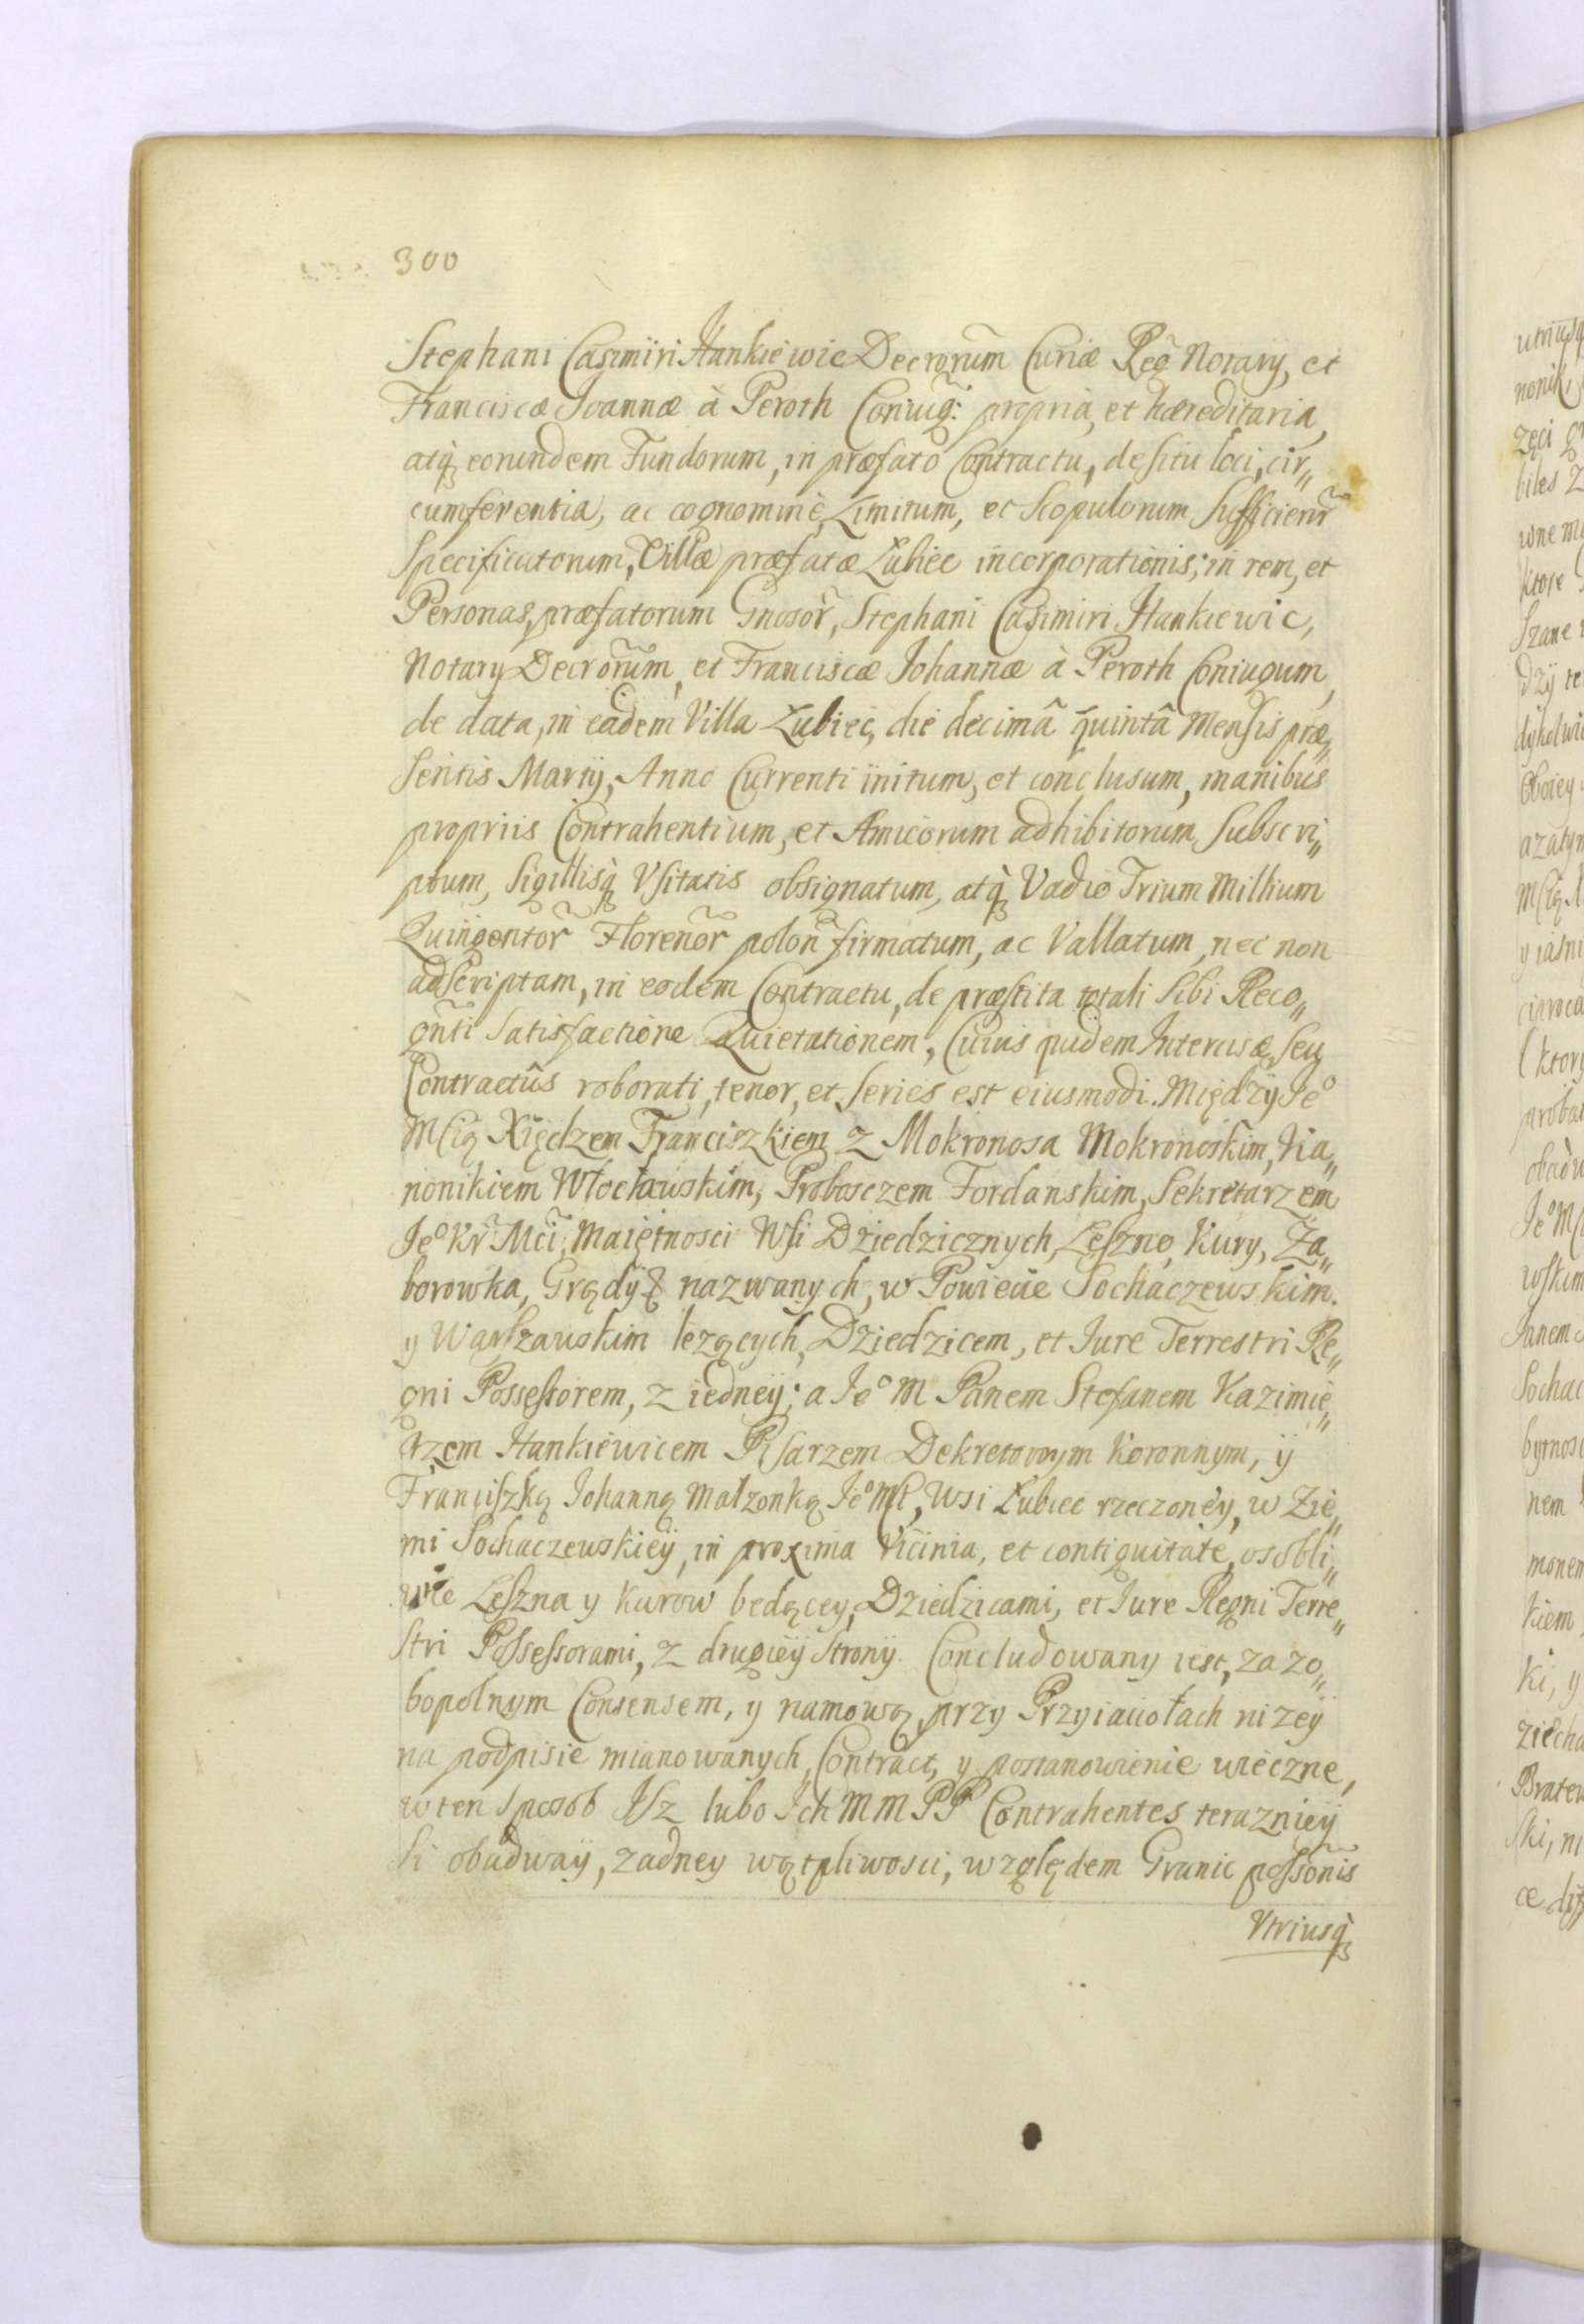 300
Stephani Casimiri Hankiewic Decrorum Curiæ Reg Notarÿ, et
Franciscæ Joannæ à Peroth Coniug: propria, et hæreditaria,
atq̀ eorundem Fundorum, in præfato Contractu, de situ loci, cir„
cumferentia, ac cognomine, Limitum, et Scopulorum Sufficienr̃
Specificatorum, Villæ præfatæ Łubiec incorporationis; in rem, et
Personas, præfatorum Gnosor̃, Stephani Casimiri Hankiewic,
Notarÿ Decrorum, et Franciscæ Johannæ à Peroth Coniugum,
de data, in eadem Villa Łubiec, die decimâ quintâ Mensis præ„
sentis Martÿ, Anno Currenti initum, et conclusum, manibus
propriis Contrahentium, et Amicorum adhibitorum, Subscri„
ptum, Sigillisq̀ Vsitatis obsignatum, atq̀ Vadio Trium Millium
Quingentor̃ Florenor̃ polon̄ firmatum, ac Vallatum, nec non
adscriptam, in eodem Contractu, de præstita totali Sibi Reco„
gn̄ti Satisfactione Quietationem, Cuius quidem Intercisæ, seu
Contractûs roborati, tenor, et Series est eiusmodi. Między Je⁰
Mcią Xiędzem Franciszkiem z Mokronosa Mokronoskim, Ka„
nonikiem Włocławskim, Proboszczem Fordanskim, Sekretarzem
Je⁰ Kr̃ Mci, Maiętnosci Wsi Dziedzicznych, Leszno, Kury, Za„
borowka, Grądy & nazwanych, w Powiecie Sochaczewskim.
y Warszawskim lezących, Dziedzicem, et Jure Terrestri Re„
gni Possessorem, z iedney; a Je⁰ M Panem Stefanem Kazimie„
rzem Hankiewicem Pisarzem Dekretowym Koronnym, ÿ
Franciszką Johanną Małzonką Je⁰ Mci, Wsi Łubiec rzeczoney, w Zie„
mi Sochaczewskieÿ, in proxima Vicinia, et contiguitate, osobli„
wie Leszna y Kurow będącey, Dziedzicami, et Jure Regni Terre„
stri Possessorami, z drugiey Strony. Concludowany iest, za zo„
bopolnym Consensem, y namową, przy Przyiaciołach nizeÿ
na podpisie mianowanych, Contract, y postanowienie wieczne,
w ten sposob Jsz lubo Jch MM PP Contrahentes terazniey
si obadwaÿ, zadney wątpliwosci, względem Granic possonis
Vtriusq̀